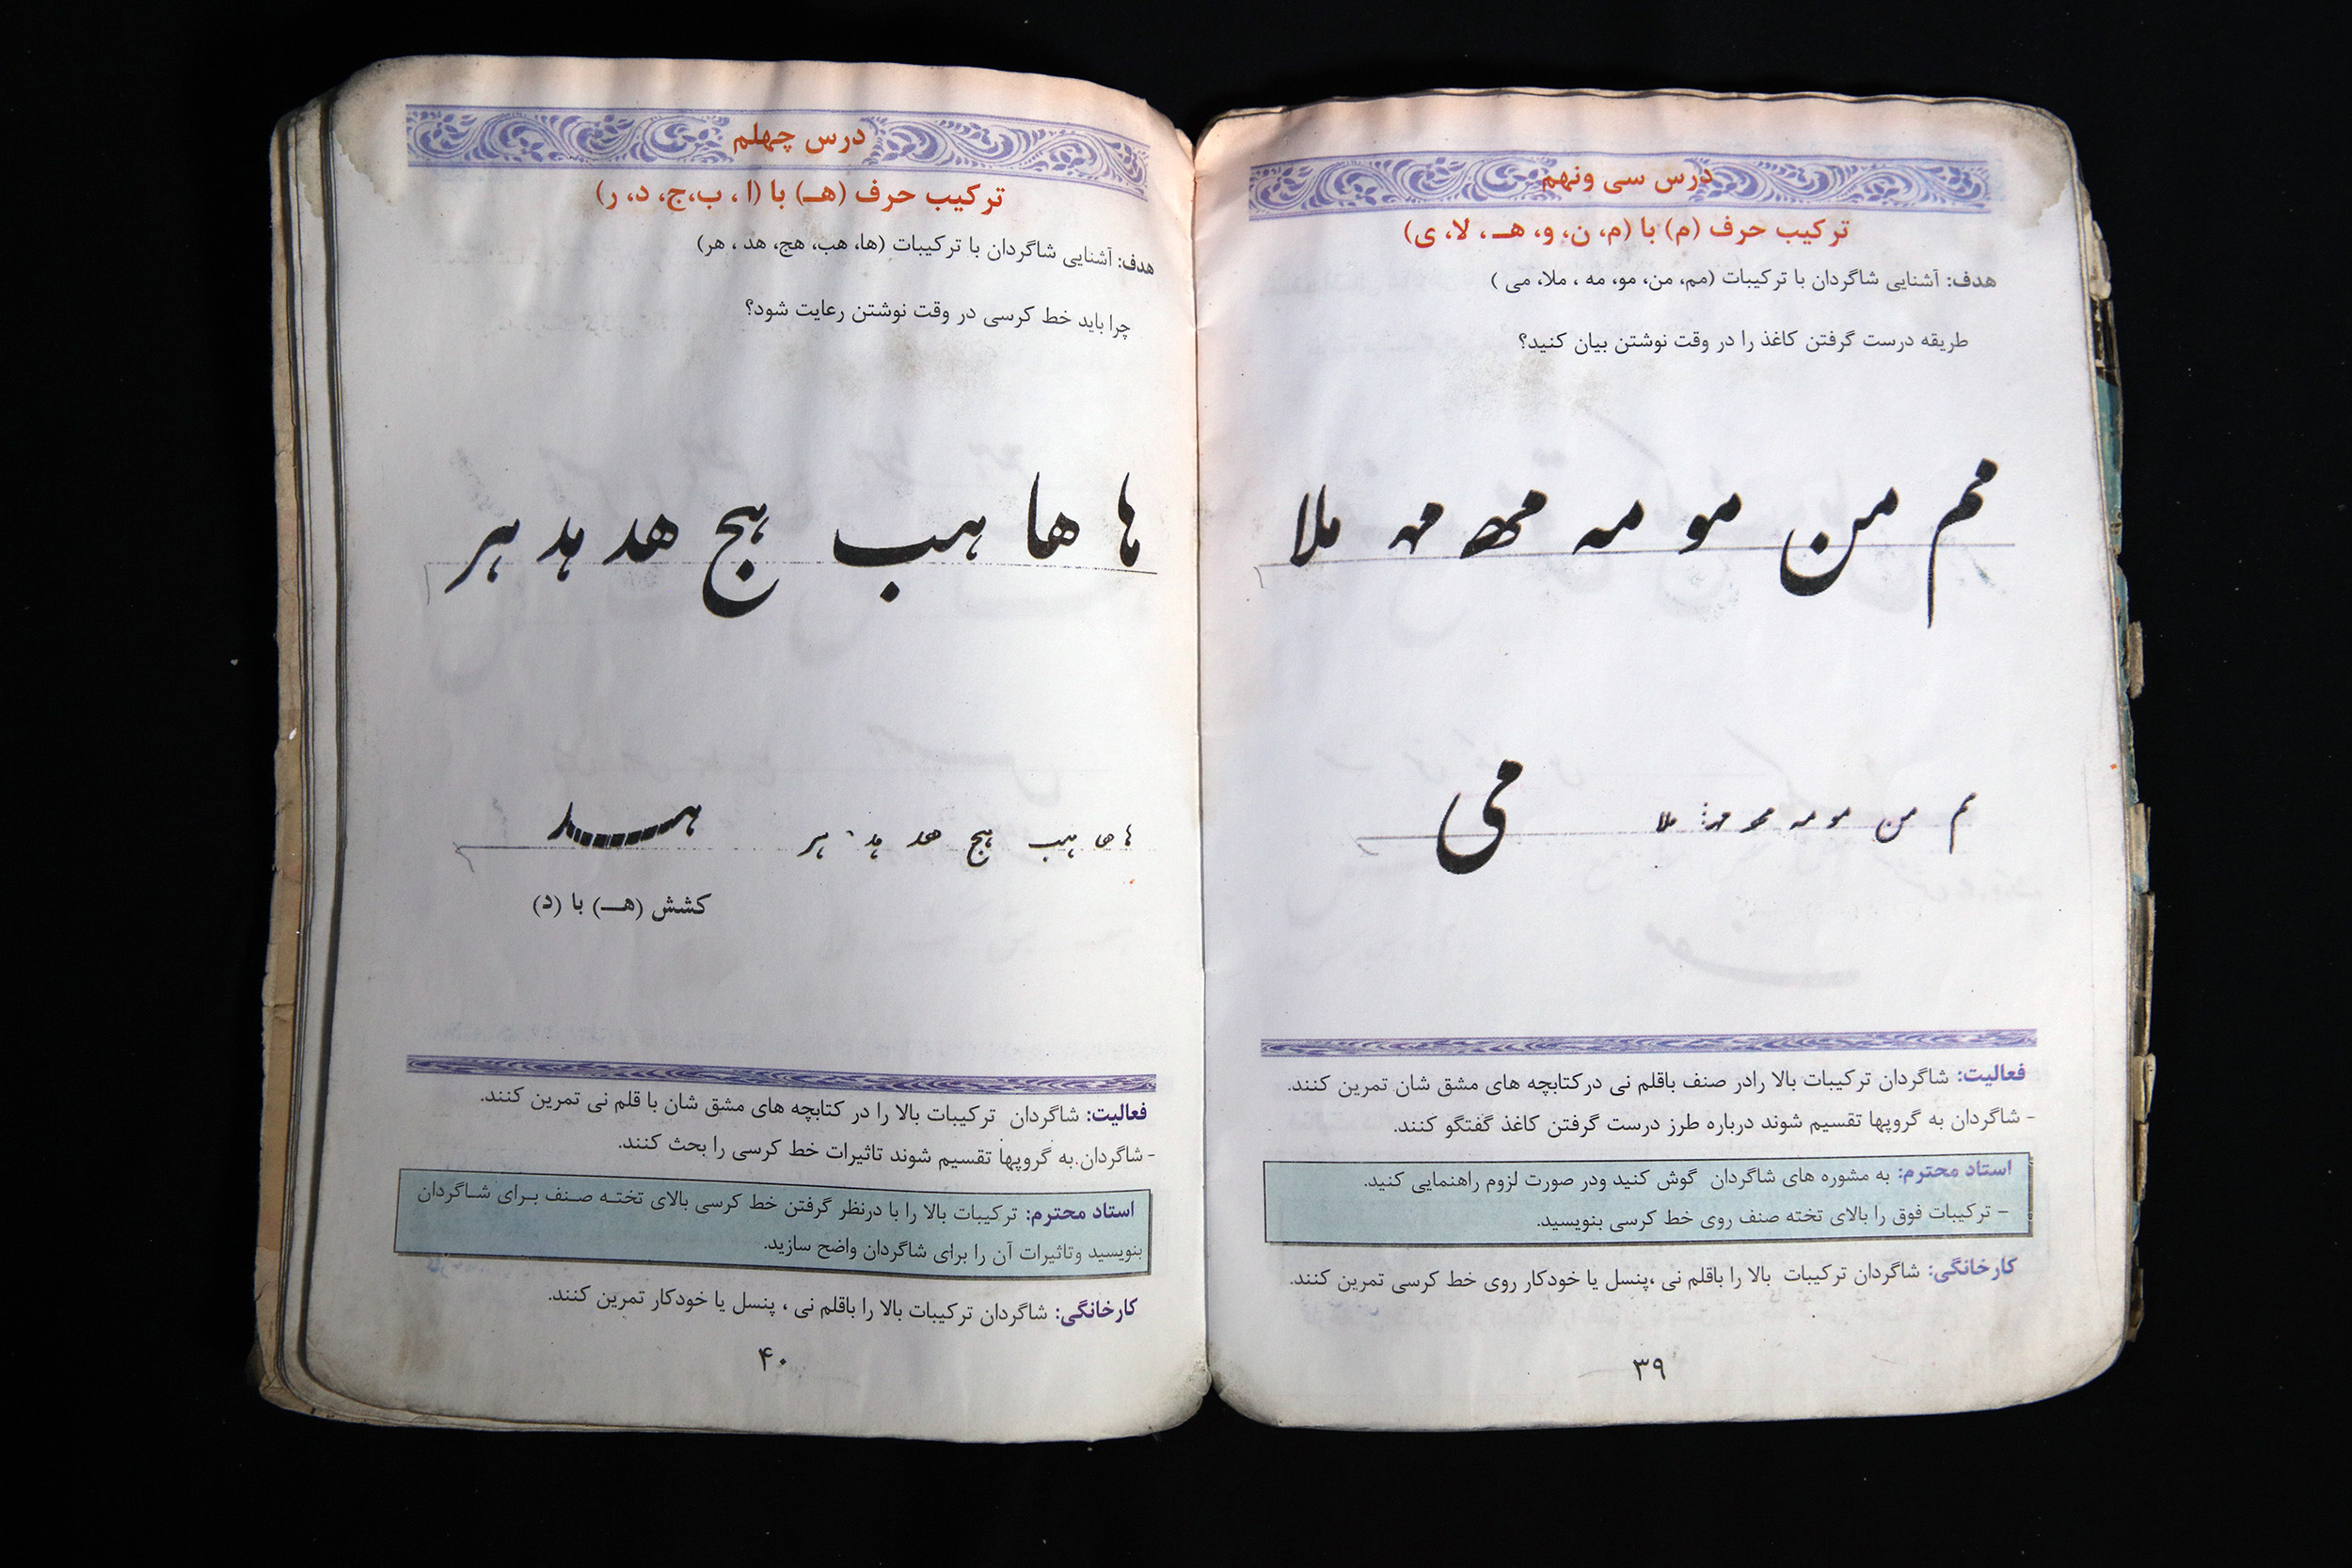 درس سی ونهم
ترکیب حرف (م) با (م، ن، و، هـ ، لا، ی)
هدف: آشنایی شاگردان با ترکیبات (مم، من، مو، مه ، ملا، می )
طریقه درست گرفتن کاغذ را در وقت نوشتن بیان کنید؟
مم من مو مه مه مه ملا
مم من مو مه مه مه ملا می
فعالیت: شاگردان ترکیبات بالا رادر صنف باقلم نی درکتابچه های مشق شان تمرین کنند.
- شاگردان به گروپها تقسیم شوند درباره طرز درست گرفتن کاغذ گفتگو کنند.
استاد محترم: به مشوره های شاگردان گوش کنید ودر صورت لزوم راهنمایی کنید.
- ترکیبات فوق را بالای تخته صنف روی خط کرسی بنویسید.
کارخانگی: شاگردان ترکیبات بالا را باقلم نی ،پنسل یا خودکار روی خط کرسی تمرین کنند.
۳۹
درس چهلم
ترکیب حرف (هـ) با (ا ، ب،ج، د، ر)
هدف: آشنایی شاگردان با ترکیبات (ها، هب، هج، هد ، هر)
چرا باید خط کرسی در وقت نوشتن رعایت شود؟
ها ها هب هج هد هد هر
ها ها هب هج هد هد هر هد
کشش (هـ) با (د)
فعالیت: شاگردان ترکیبات بالا را در کتابچه های مشق شان با قلم نی تمرین کنند.
- شاگردان به گروپها تقسیم شوند تاثیرات خط کرسی را بحث کنند.
استاد محترم: ترکیبات بالا را با درنظر گرفتن خط کرسی بالای تخته صنف برای شاگردان
بنویسید وتاثیرات آن را برای شاگردان واضح سازید.
کارخانگی: شاگردان ترکیبات بالا را باقلم نی ، پنسل یا خودکار تمرین کنند.
۴۰